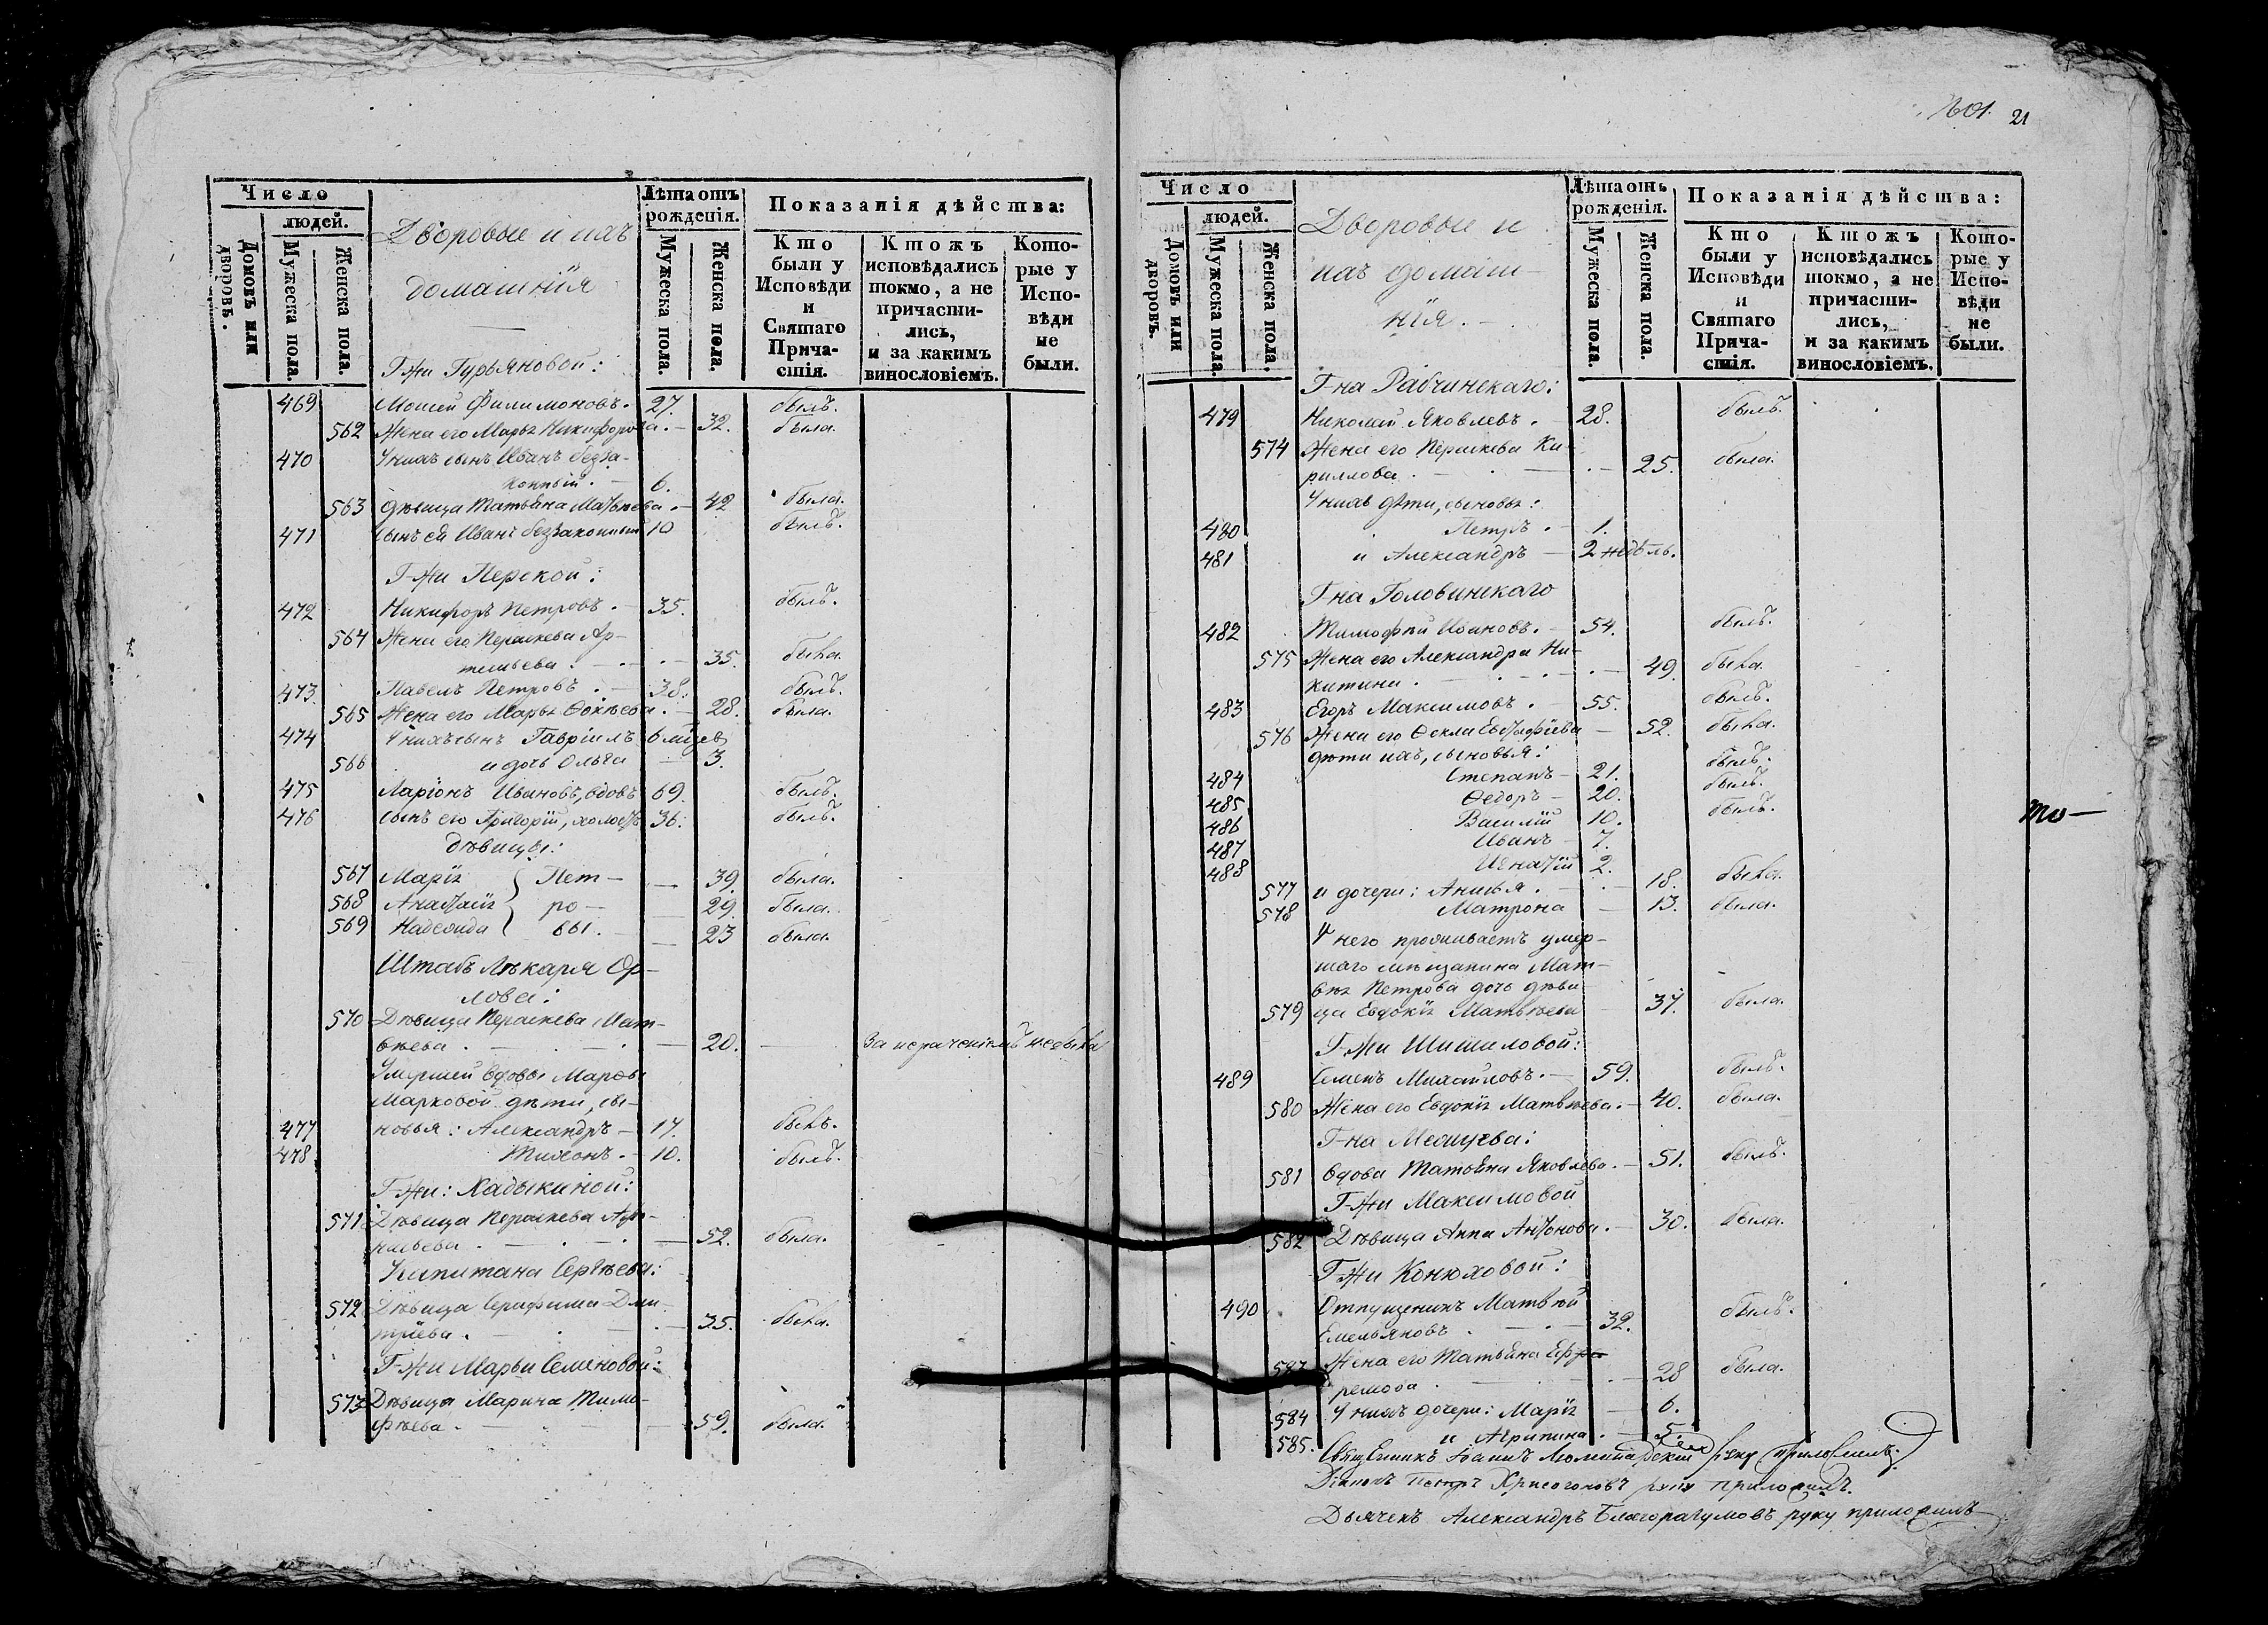 Число
людей.
Домовъ или дворовъ.
Мужеска пола.
Женска пола.
Дворовые и ихъ
домашнія
Лѣта отъ
рожденія.
Мужеска пола.
Женска пола.
Показанія дѣйства:
Кто
были у
Исповѣди
и
Святаго
Прича-
стія.
Ктожъ
исповѣдались
токмо, а не
причасти-
лись,
и за какимъ
винословіемъ.
Кото-
рые у
Испо-
вѣди
не
были.
Г-жи Гурьяновой:
469 Моисей Филимоновъ. 27. былъ.
562 Жена его Марья Никифорова. — 32. была.
470 У нихъ сынъ Иванъ безза-
конный. — 6.
563 Дѣвица Татьяна Матвѣева. — 42 была.
471 сынъ ея Иванъ беззаконный 10 былъ.
Г-жи Перской:
472 Никифоръ Петровъ. — 35. былъ.
564 Жена его Параскева Ар-
темьева. — 35. была.
473. Павелъ Петровъ. — 38. былъ.
565 Жена его Марья Фокѣева. — 28. была.
474 У нихъ сынъ Гавріилъ 6 мѣсяцев
566 и дочь Ольга — 3.
475 Ларіонъ Ивановъ, вдовъ 69. былъ.
476 сынъ его Григорій, холостъ 36. былъ.
Дѣвицы:
567 Марія } Пет — 39. была.
568 Анастасія } ро — 29. была.
569 Надежда } вы. — 23 была.
Штабъ Лѣкаря Ор-
лова:
570 Дѣвица Параскева Мат-
вѣева. — 20. — За нераченіемъ не была
Умершей вдовы Марѳы
Марковой дѣти, сы-
477 новья: Александръ — 17. былъ.
478 Тихонъ. — 10. былъ.
Г-жи: Кадыкиной:
571 Дѣвица Параскева Аѳа-
насьева. — 52. была.
Капитана Сергѣева:
572 Дѣвица Серафима Дми-
тріева. — 35. была.
Г-жи Марьи Семеновой:
573 Дѣвица Марина Тимо-
фѣева. — 59. была.
21
Число
людей.
Домовъ или дворовъ.
Мужеска пола.
Женска пола.
Дворовые и
ихъ домаш-
нія. —
Лѣта отъ
рожденія.
Мужеска пола.
Женска пола.
Показанія дѣйства:
Кто
были у
Исповѣди
и
Святаго
Прича-
стія.
Ктожъ
исповѣдались
токмо, а не
причасти-
лись,
и за какимъ
винословіемъ.
Кото-
рые у
Испо-
вѣди
не
были.
Г-на Рабчинскаго:
479 Николай Яковлевъ. 28. былъ.
574 Жена его Параскева Ки-
риллова. — 25. была.
У нихъ дѣти, сыновья:
480 Петръ. — 1.
481 и Александръ — 2 недѣль.
Г-на Головинскаго
482 Тимофѣй Ивановъ. — 54. былъ.
575 Жена его Александра Ни-
китина. — 49. была.
483 Егоръ Максимовъ. 55. былъ.
576 Жена его Ѳекла Евстафіева — 52. была.
дѣти ихъ, сыновья:
484 Степанъ — 21. былъ.
485 Ѳедоръ — 20. былъ.
486 Василій 10. былъ.
487 Иванъ — 7.
488 Игнатій 2.
577 и дочери: Анисья. — 18. была.
578 Матрона — 13. была.
У него проживаетъ умер-
шаго мѣщанина Мат-
вѣя Петрова дочь дѣви
579 ца Евдокія Матвѣева 37. была.
Г-жи Шишловой:
489 Семенъ Михайловъ. — 59. былъ.
580 Жена его Евдокія Матвѣева. — 40. была.
581 Вдова Татьяна Яковлева. — 51. былъ.
Г-жи Максимовой
582 Дѣвица Анна Антонова. — 30. была.
Г-жи Конюховой:
490 Отпущеникъ Матвѣй
Емельяновъ. — 32. былъ.
583 Жена его Татьяна Еф
ремова. — 28 была.
584 У нихъ дочери: Марія — 6.
585. и Агрипина. — 5.
Священникъ Іоаннъ руку приложилъ.
Діаконъ Петръ Хрисогоновъ руку приложилъ.
Дьячекъ Александръ Благоразумовъ руку приложилъ